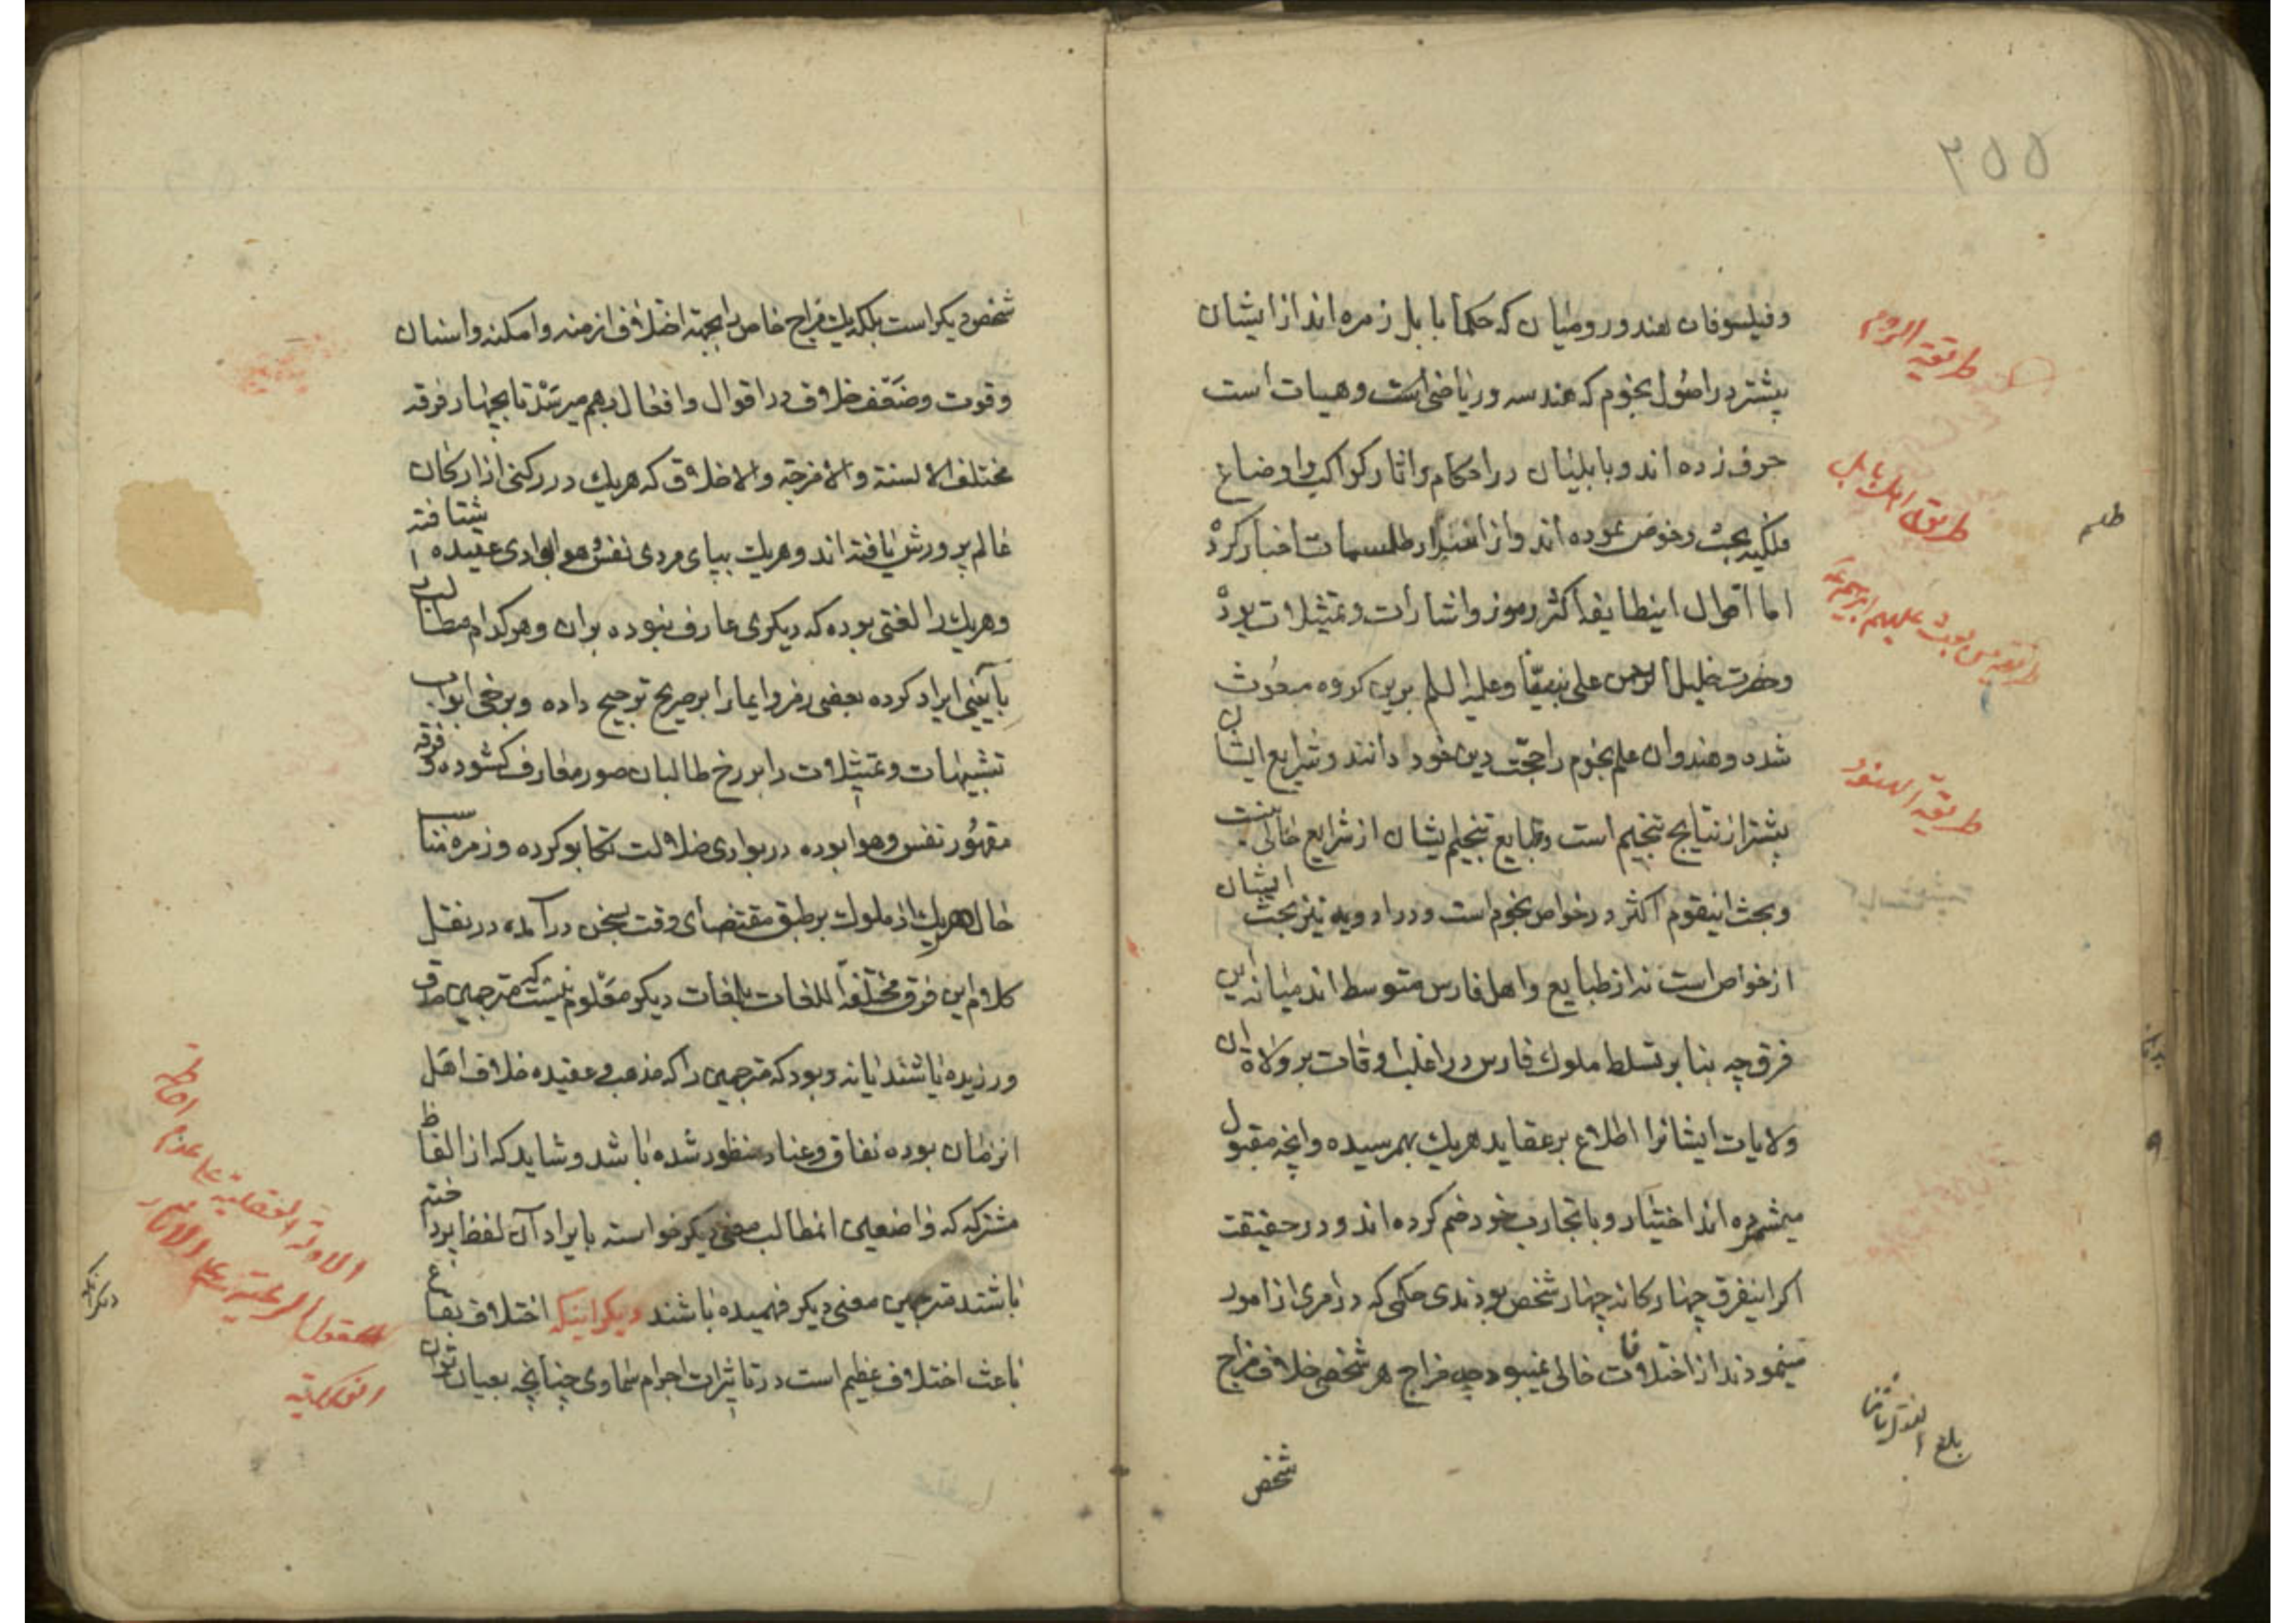 ۲۵۵
وفیلسوفان هند و رومیان که حکما بابل زمره اند از ایشان
بیشتر در اصول نجوم که هندسه و ریاضی است و هیات است
حرف زده اند و بابلیان در احکام و اثار کواکب و اوضاع
فلکیه بحث و خوض نموده اند و از اسرار طلسمات اخبار کرد
اما اقوال اینطایفه اکثر رموز و اشارات و تمثیلات بود
و حضرت خلیل الرحمن علی نبینا و علیه السلم برین کروه مبعوث
شده و هندوان علم نجوم را حجت دین خود دانند و شرایع ایشان
بیشتر از نتایج تنجیم است و طبایع تنجیم ایشان از شرایع خالی نیست
و بحث اینقوم اکثر در خواص نجوم است و در ادویه نیز بحث ایشان
از خواص است نه از طبایع و اهل فارس متوسط اند میانه این
فرق چه بنا بر تسلط ملوک فارس در اغلب اوقات بر ولاة ان
ولایات ایشانرا اطلاع بر عقاید هریک بهمرسیده و انچه مقبول
میشمرده اند اختیار و با تجارب خود ضم کرده اند و در حقیقت
اکر اینفرق چهارکانه چهار شخص بودندی حکمی که در امری از امور
مینمودند از اختلافات خالی نمیبود چه مزاج هر شخص خلاف مزاج
شخص
طریقة الروم
طریق اهل بابل
طلسم
طریقة الهنود
شخص دیکر است بلکه یک مزاج خاص را بجهة اختلاف ازمنه و امکنه و اسنان
و قوت و ضعف خلاف در اقوال و افعال بهم میرسد تا بچهار فرقه
مختلف الالسنة والامزجه والاخلاق که هریک در رکنی از ارکان
عالم پرورش یافته اند و هریک بپای مردی نفس و هوا بوادی عقیده شتافته
و هریک را لغتی بوده که دیکری عارف نبوده بران و هرکدام مطالب
بآیینی ایراد کرده بعضی رمز و ایما را بر صریح ترجیح داده و برخی ابواب
تشبیهات و تمثیلات را بر رخ طالبان صور معارف کشوده و فرقه
مقهور نفس و هوا بوده در بوادی ضلالت تکاپو کرده و زمره مناسب
حال هریک از ملوک بر طبق مقتضای وقت بسخن درآمده در نقل
کلام این فرق مختلفة اللغات بلغات دیکر معلوم نیست که مترجمین صدق
ورزیده باشند یا نه و بود که مترجمین را که مذهب و عقیده خلاف اهل
انزمان بوده نفاق و عناد منظور شده باشد و شاید که از الفاظ
مشترکه که واضعین انمطالب معنی دیکر خواسته بایراد آن لفظ پرداخته
باشند مترجمین معنی دیکر فهمیده باشند دیکر اینکه اختلاف بقاع
باعث اختلاف عظیم است در تاثیرات اجرام سماوی چنانچه بعیان توان